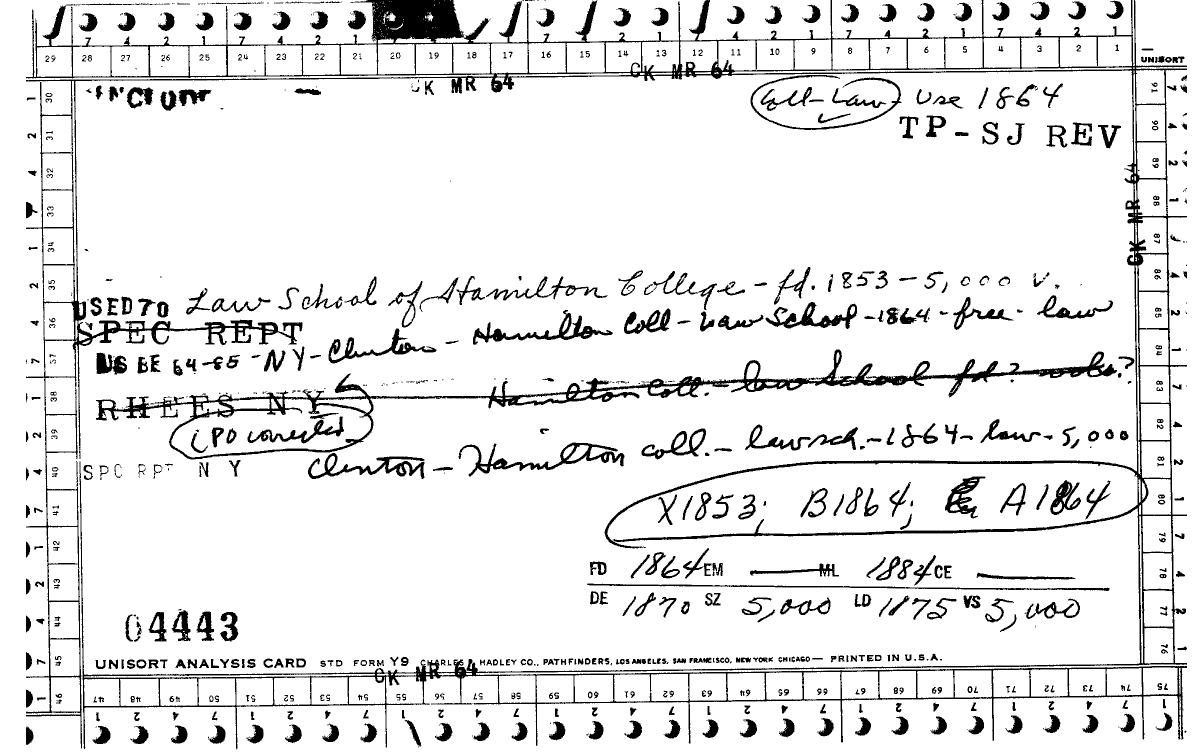 7 4 2 1 7 4 2 1 7 7 4 2 1 7 4 2 1 7 4 2 1
29 28 27 26 25 24 23 22 21 20 19 18 17 16 15 14 13 12 11 10 9 8 7 6 5 4 3 2 1 UNISORT
CK MR 64 CK MR 64
Coll-Law - Use 1864
TP-SJ REV
CK MR 64
USED TO Law School of Hamilton College - fd. 1853 - 5,000 v.
SPEC REPT
US BE 64-65 - NY - Clinton - Hamilton Coll - Law School - 1864 - free - law
RHEES NY Hamilton Coll. - law School fd? vols.?
(PO corrected)
SPC RPT N Y Clinton - Hamilton coll. - law sch. - 1864 - law - 5,000
X1853; B1864; A1864
FD 1864 EM — ML 1884 CE —
DE 1870 SZ 5,000 LD 1875 VS 5,000
04443
UNISORT ANALYSIS CARD STD FORM Y9 CHARLES R. HADLEY CO., PATHFINDERS, LOS ANGELES, SAN FRANCISCO, NEW YORK CHICAGO — PRINTED IN U.S.A.
CK MR 64
30 31 32 33 34 35 36 37 38 39 40 41 42 43 44 45 46
91 90 89 88 87 86 85 84 83 82 81 80 79 78 77 76
47 48 49 50 51 52 53 54 55 56 57 58 59 60 61 62 63 64 65 66 67 68 69 70 71 72 73 74 75